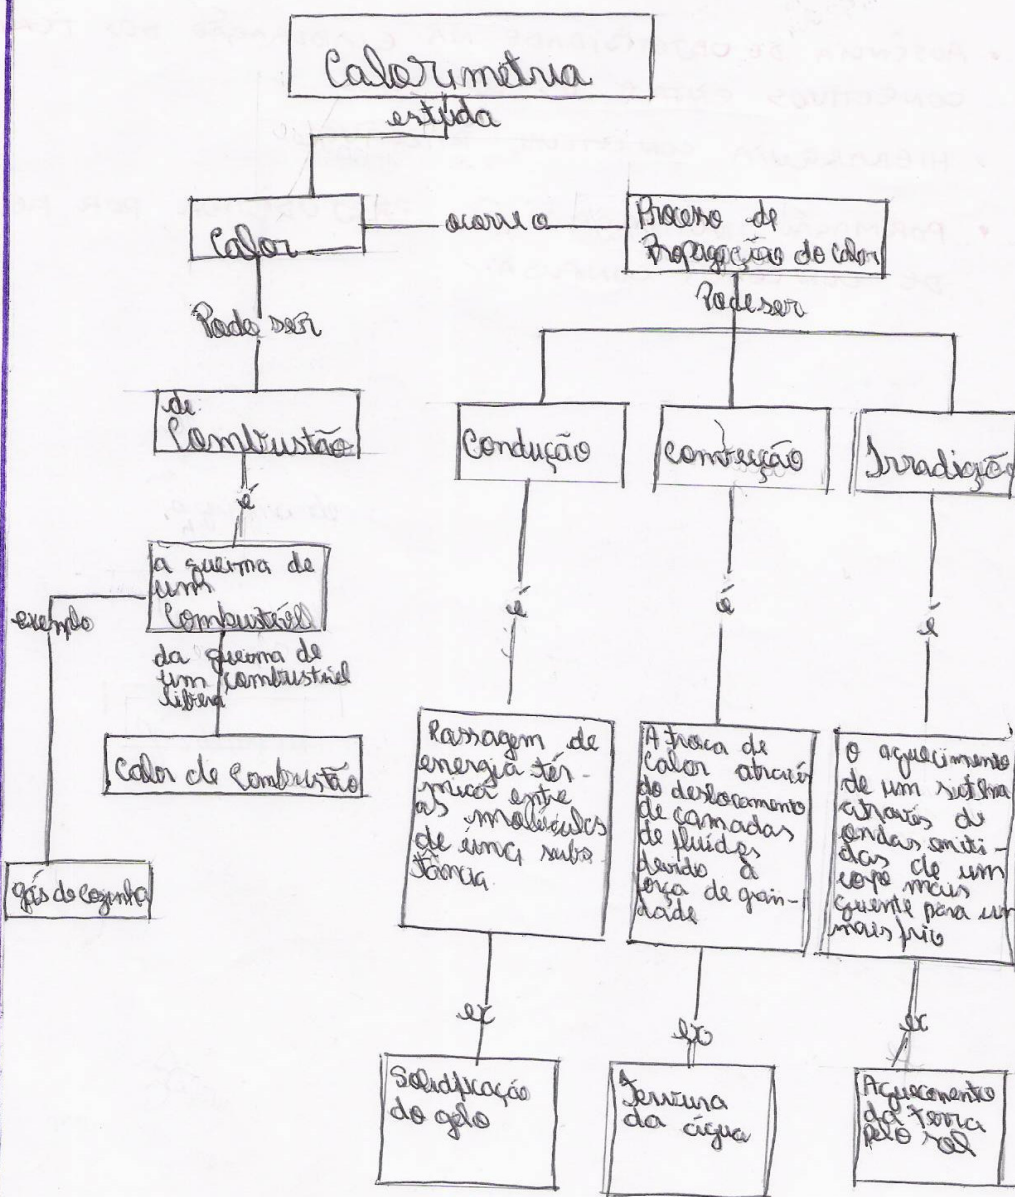 Calorimetria
estuda
Calor
ocorre o
Processo de
Propagação do calor
Pode ser
Pode ser
de
Combustão
é
a queima de
um
Combustível
exemplo
da queima de
um combustível
libera
Calor de Combustão
gás de cozinha
Condução
Convecção
Irradiação
é
é
é
Passagem de
energia tér-
mica entre
as moléculas
de uma subs
tância
A troca de
Calor através
do deslocamento
de camadas
de fluídos
devido à
força de gravi-
dade
O aquecimento
de um sistema
através de
ondas emiti-
das de um
corpo mais
quente para um
mais frio
ex
ex
ex
Solidificação
do gelo
Fervura
da água
Aquecimento
da terra
pelo sol